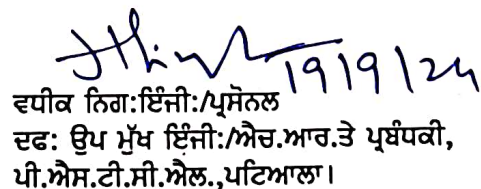 19/9/24
ਵਧੀਕ ਨਿਗ:ਇੰਜੀ:/ਪ੍ਰਸੋਨਲ
ਦਫ: ਉਪ ਮੁੱਖ ਇੰਜੀ:/ਐਚ.ਆਰ.ਤੇ ਪ੍ਰਬੰਧਕੀ,
ਪੀ.ਐਸ.ਟੀ.ਸੀ.ਐਲ.,ਪਟਿਆਲਾ।